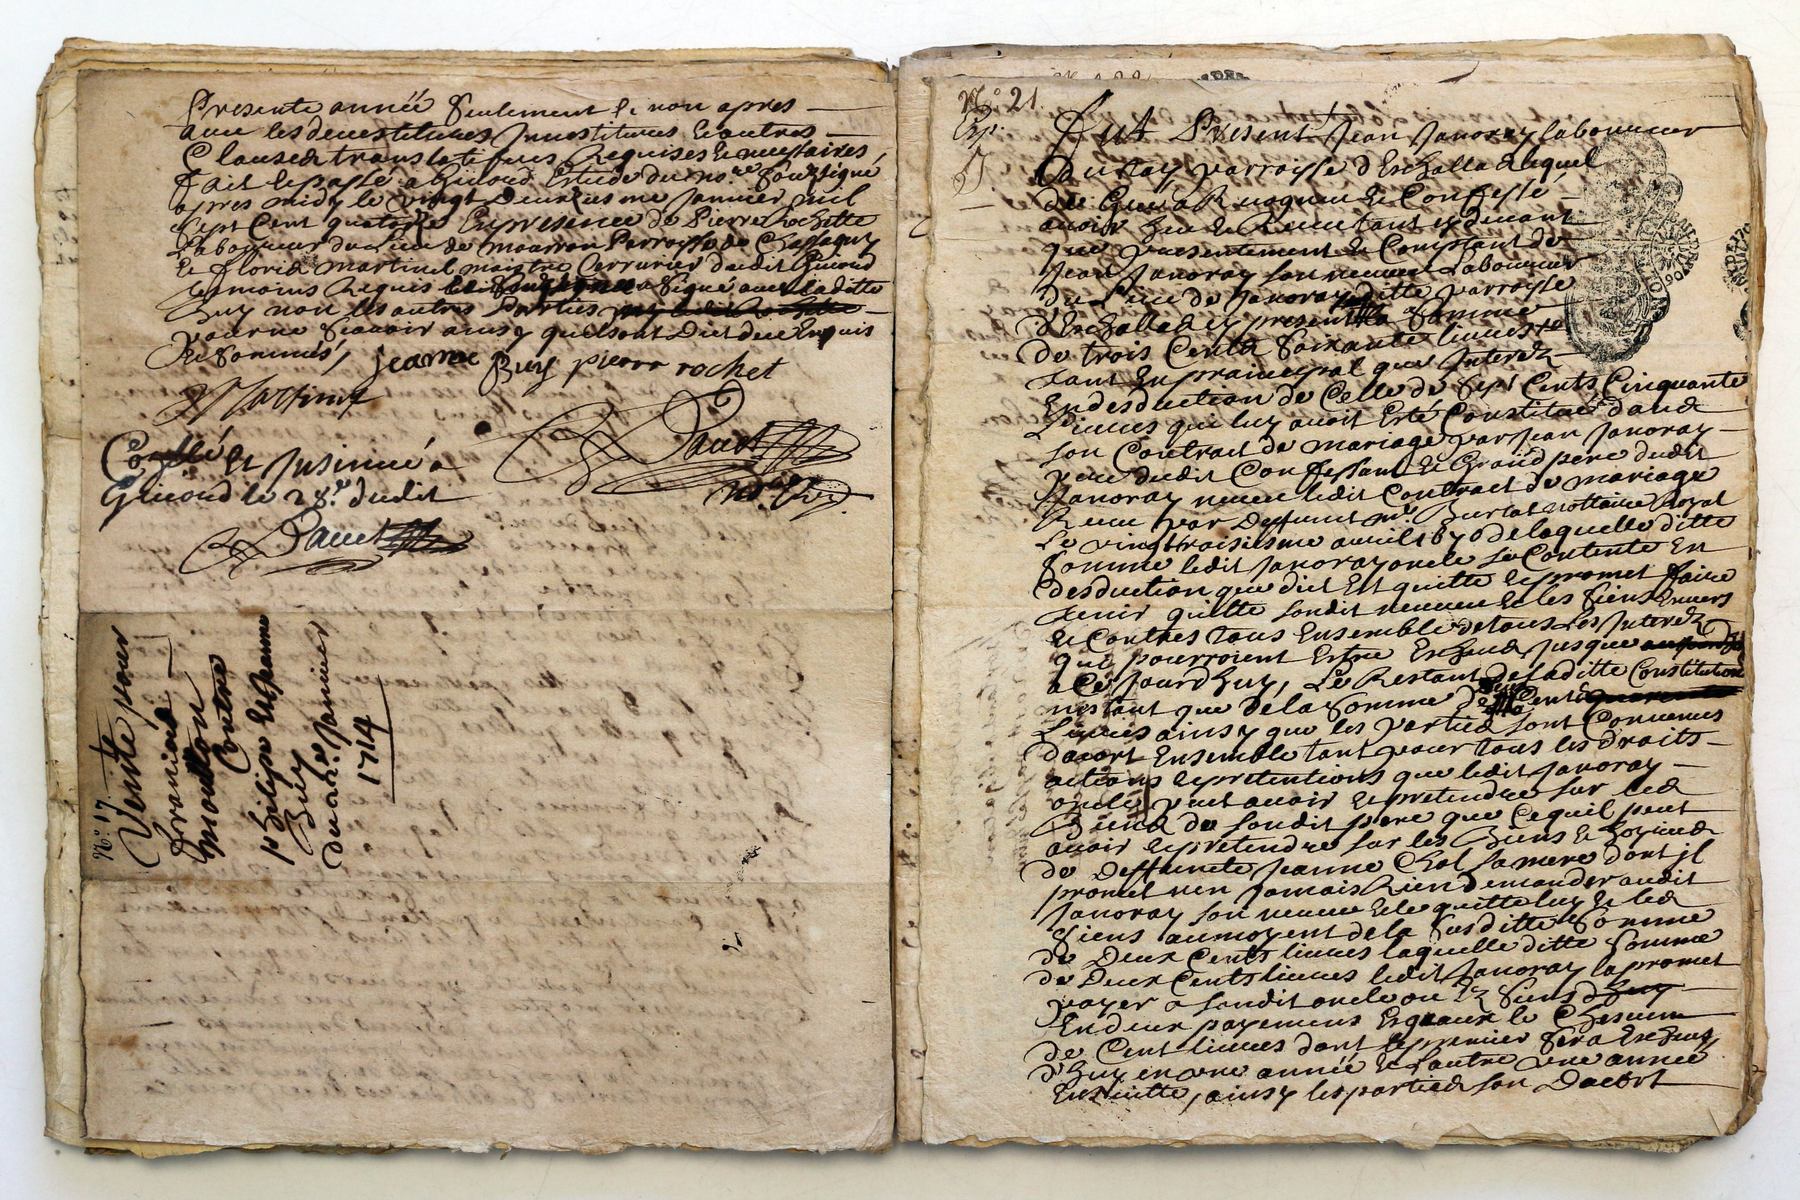 Presente année seulement & non apres
avec les devestitures Investitures & autres
Clauses translatifves Requises & necessaires,
fait & passé a Givord Estude du no.re soussigné
apres midy le vingt Deuxiesme Janvier mil
sept Cent quatorze En presence de Pierre Rochette
Laboureur du Lieu de Mourron Parroisse de Chassagny
& florid martinel maistre serrurier dudit Givord
temoins Requis signé avec laditte
Buy non les autres Parties
pour ne sçavoir ainsy quils ont Dict de ce Enquis
& sommés,
jeanne Buy pierre rochet
Martinel
Collé et Insinué a
Givord le 28.e dudit
Dauet
Dauet
no.re
N.o 17
Vente pour
moutton
Contre
Philipe & Jeanne
Buy
du 22.e Janvier
1714
N.o 21.
Exp.
fut Present Jean Janoray laboureur
parroisse d'Eschallas lequel
de Gré a Recogneu & Confessé
avoir Heu & Receu tant cy devant
que presentement & Comptant de
Jean Janoray son neveu Laboureur
du Lieu de Janoray ditte parroisse
d'Eschallas cy present la somme
de trois Cents soixante livres
tant En principal que Interez
En desduction de Celle de sept Cents Cinquante
Livres qui luy avoit Esté Constitué dans
son Contrat de mariage par Jean Janoray
pere dudit Confessant & Grand pere dudit
Janoray neveu ledit Contract de mariage
Receu par Deffunct m.e nottaire Royal
Le vingt troisiesme avril 1670 de laquelle ditte
somme ledit Janoray oncle se Contente En
desduction que dict Est quitte & promet faire
tenir quitte sondit neveu & les siens Envers
& Contres tous Ensemble de tous Les Interez
qui pourroient Estre Escheus jusque
a Ce Jourd'huy, Le Restant de laditte Constitution
nestant que de la somme de Cents
Livres ainsy que les parties sont Convenues
dacort Ensemble tant pour tous les Droits
actions & pretentions que ledit Janoray
oncle peut avoir & pretendre sur les
Biens de sondit pere que Ce quil peut
avoir & pretendre sur les Biens & hoyries
de Deffuncte Jeanne Chol sa mere dont jl
promet nen jamais Rien demander audit
Janoray son neveu & le quitte luy & les
siens au moyent de la susditte somme
de Deux Cents livres laquelle ditte somme
de Deux Cents livres ledit Janoray la promet
payer a sondit oncle ou Ez siens
En deux payemens Esgaux le Chescun
de Cent livres dont le premier sera Escheus
d'huy en une année & l'autre une année
Ensuitte, ainsy les parties son Dacort